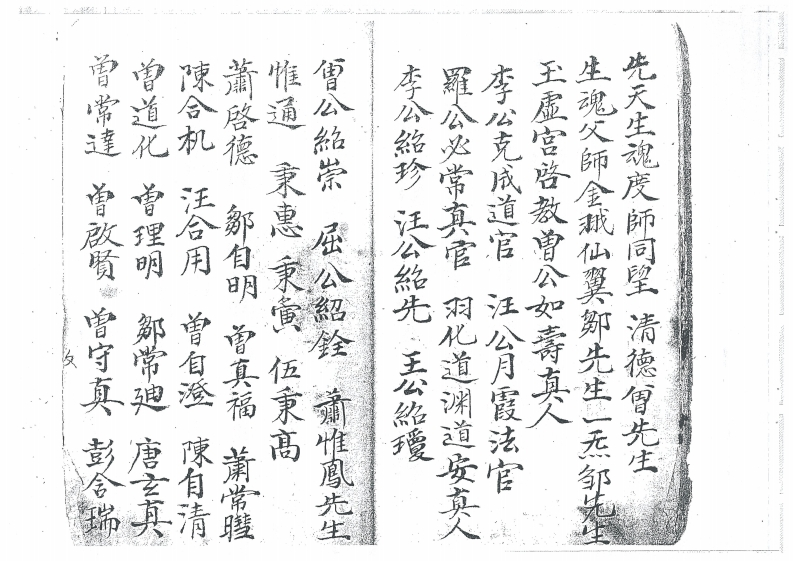 先天生魂度師同壂 清德曾先生
生魂父師金戣仙翼鄒先生一炁邹先生
玉虛宮啓教曾公如壽真人
李公克成道官 汪公月霞法官
羅公必常真官 羽化道渊道安真人
李公紹珍 汪公紹先 王公紹瓊
曾公紹崇 屈公紹銓 蕭惟鳳先生
惟通 秉惠 秉寅 伍秉髙
蕭啓德 鄒自明 曾真福 蕭常
陳合机 汪合用 曾自澄 陳自清
曾道化 曾理明 鄒常廸 唐玄真
曾常達 曾啟賢 曾守真 彭含瑞